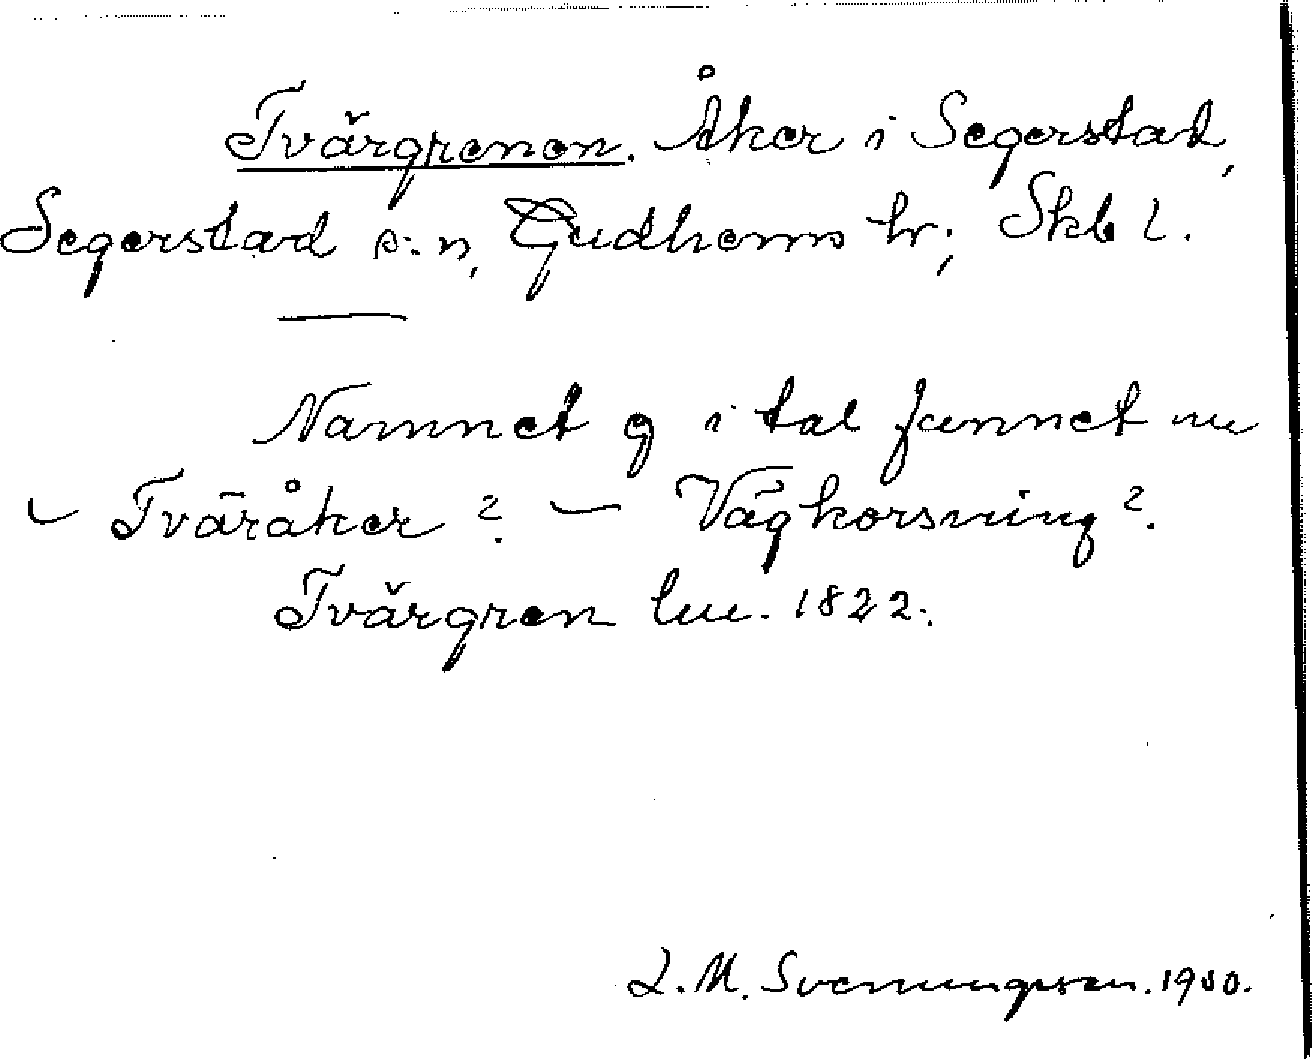 Tvärgrenen. Åker i Segerstad,
Segerstad s:n, Gudhems hr; Skb l.
Namnet g i tal funnet nu
– Tväråker? – Vägkorsning?.
Tvärgren lm. 1822.
L. M. Svenungsson. 1930.